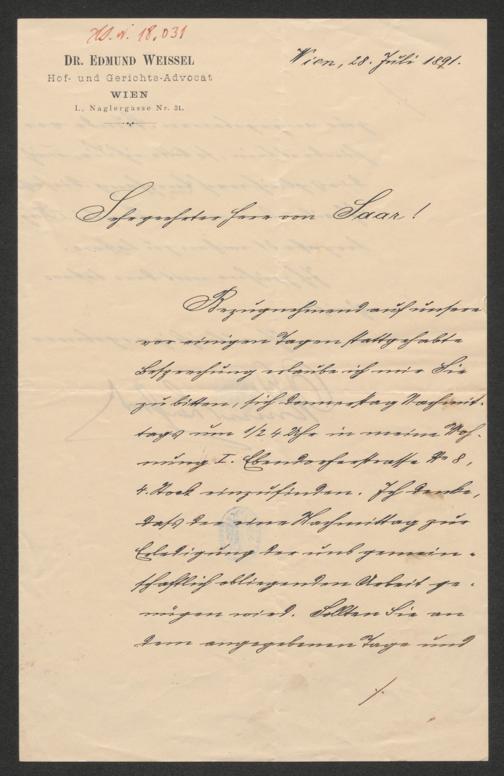 Hs. N. 18.031
DR. EDMUND WEISSEL
Hof- und Gerichts-Advocat
WIEN
I., Naglergasse Nr. 31.
Wien, 28. Juli 1891.
Sehrgeehrter Herr von Saar!
Bezugnehmend auf unsere
vor einigen Tagen stattgehabte
Besprechung erlaube ich mir Sie
zu bitten, sich Donnerstag Nachmit-
tags um 1/2 4 Uhr in meine Woh-
nung I. Ebendorferstrasse No 8,
4. Stock einzufinden. Ich denke,
dass der eine Nachmittag zur
Erledigung der uns gemein-
schaftlich obliegenden Arbeit ge-
nügen wird. Sollten Sie an
dem angegebenen Tage und
./.